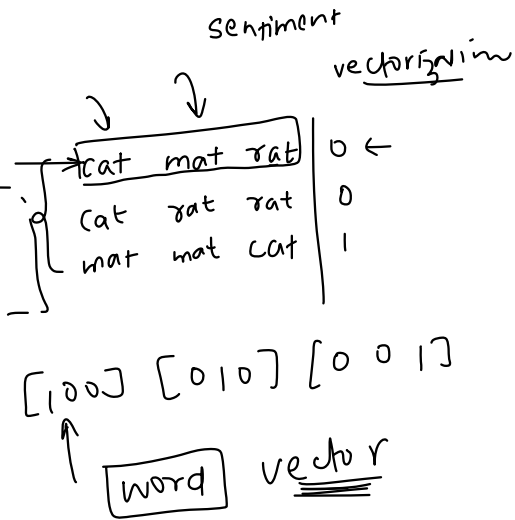 sentiment
vectorization
cat mat rat 0
cat rat rat 0
mat mat cat 1
[100] [010] [0 0 1]
word vector